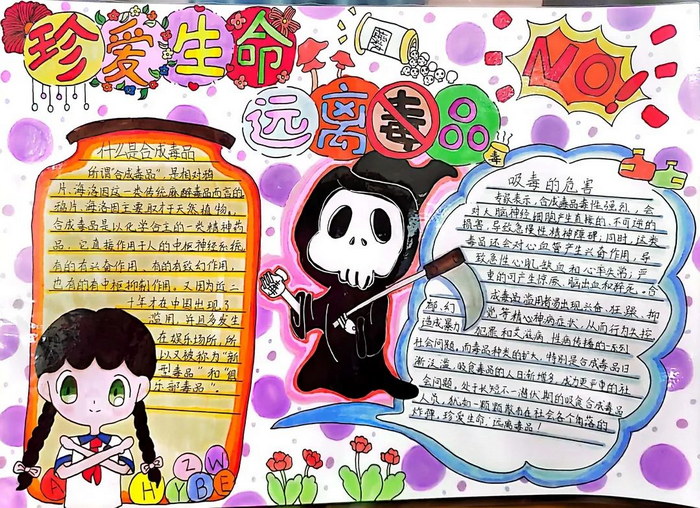 珍爱生命
远离毒品
NO!
什么是合成毒品
所谓“合成毒品”,是相对鸦
片、海洛因这一类传统麻醉毒品而言的
鸦片、海洛因主要取材于天然植物,
合成毒品是以化学合主的一类精神药
品,它直接作用于人的中枢神经系统
有的有兴奋作用,有的有致幻作用,
也有的有中枢抑制作用,又因为近二
十年才在中国出现了
滥用,并且多发生
在娱乐场所,所
以又被称为“新
型毒品”和“俱
乐部毒品”.
吸毒的危害
专家表示,合成毒品毒性强烈,会
对人脑神经细胞产生直接的、不可逆的
损害,导致急慢性精神障碍;同时,这类
毒品还会对心血管产生兴奋作用,导
致急性心肌缺血和心率失常,严
重的可产生惊厥、脑出血和猝死,合
成毒品滥用者易出现兴奋、狂躁、抑
郁、幻觉等精神病症状,从而行为失控
造成暴力犯罪和艾滋病性病传播的一系列
社会问题,而毒品种类的扩大,特别是合成毒品日
渐泛滥,吸食毒品的人日渐增多,成为严重的社
会问题,处于长短不一潜伏期的吸食合成毒品
人员,犹如一颗颗散布在社会各个角落的
炸弹,珍爱生命,远离毒品!
毒
A
H
Y
B
E
Z
W